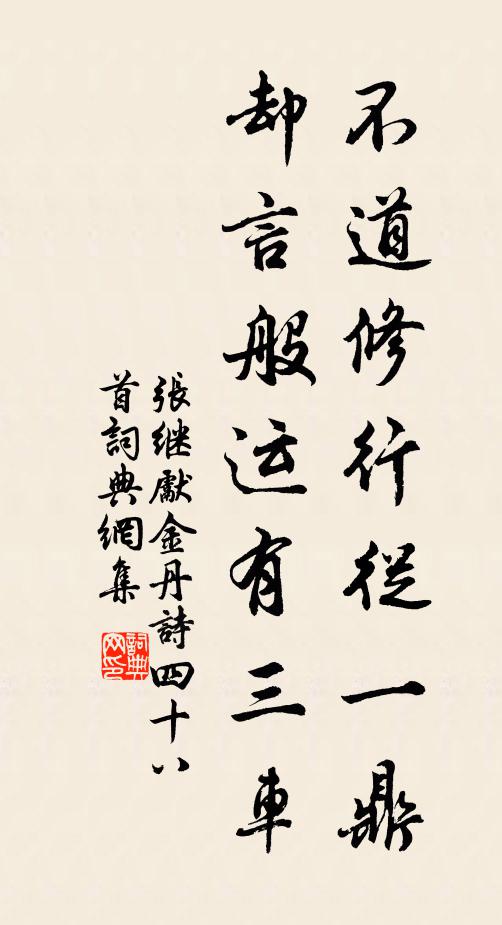 不道修行從一鼎
却言般运有三車
張继獻金丹詩四十八
首詞典網集
詞典
网印